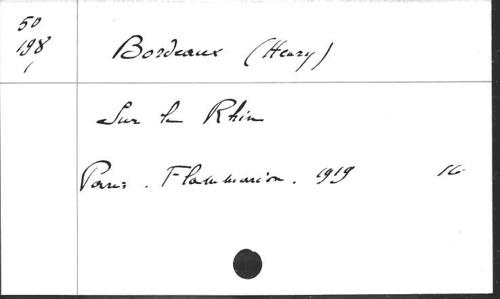 50
198
1
Bordeaux (Henry)
Sur le Rhin
Paris. Flammarion. 1919 16